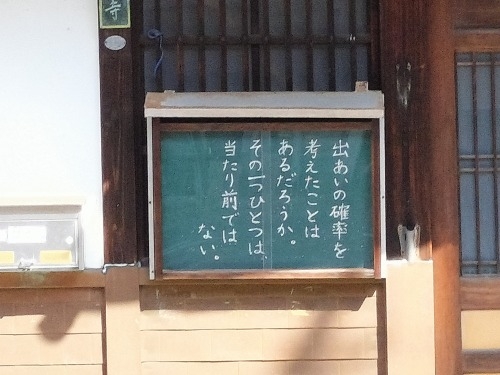 寺
出あいの確率を
考えたことは
あるだろうか。
その一つひとつは、
当たり前では
ない。